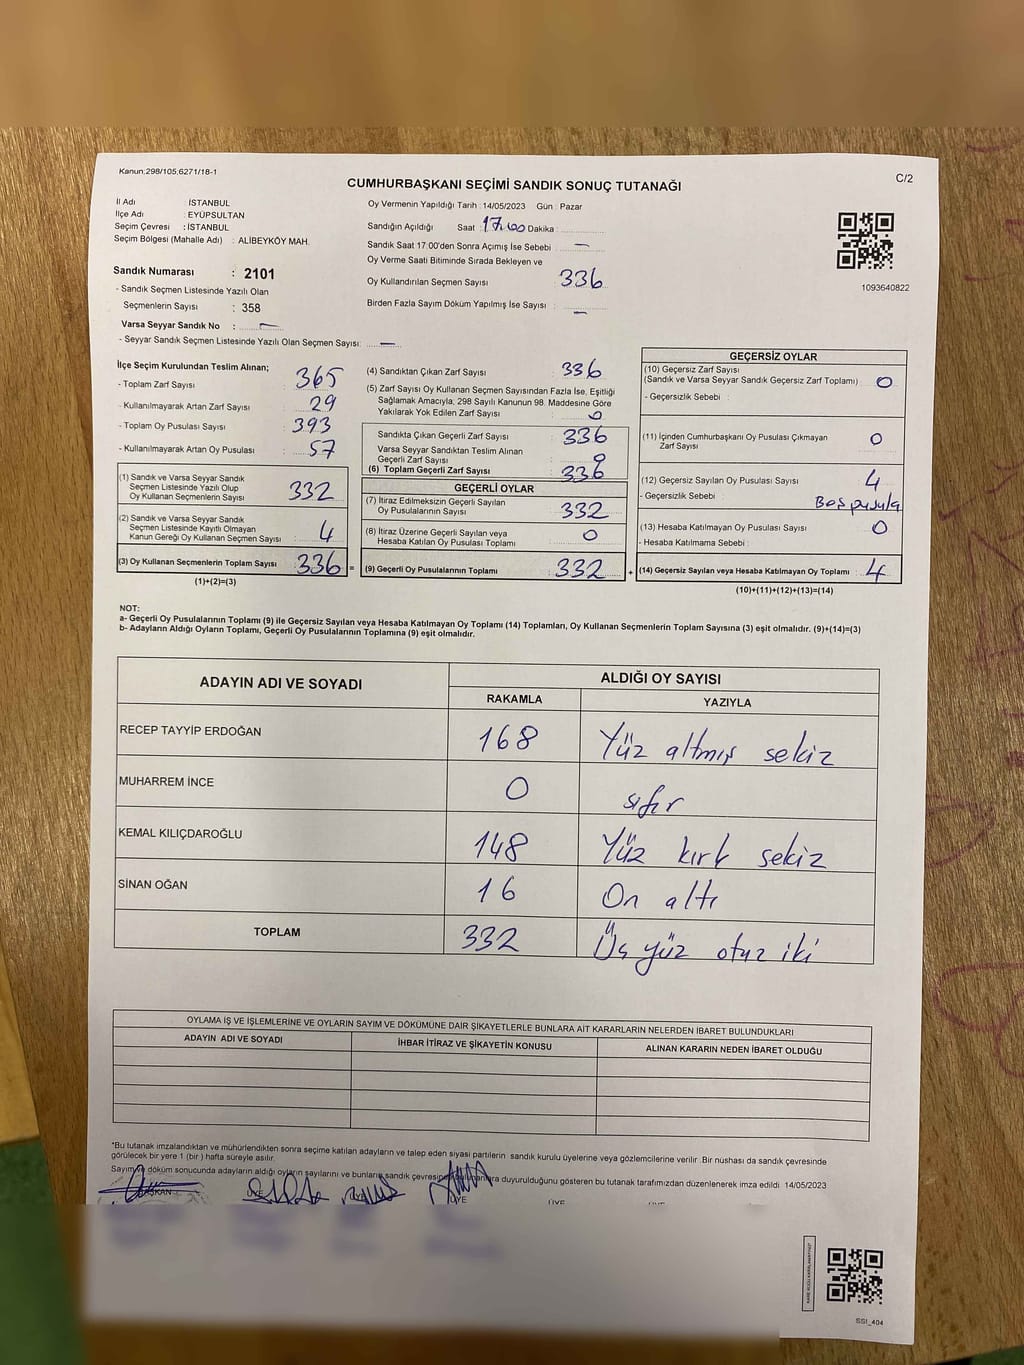 Kanun;298/105,6271/18-1
C/2
CUMHURBAŞKANI SEÇİMİ SANDIK SONUÇ TUTANAĞI
İl Adı : İSTANBUL
İlçe Adı : EYÜPSULTAN
Seçim Çevresi : İSTANBUL
Seçim Bölgesi (Mahalle Adı) : ALİBEYKÖY MAH.
Oy Vermenin Yapıldığı Tarih :14/05/2023 Gün : Pazar
Sandığın Açıldığı Saat : 17.00 Dakika :
Sandık Saat 17:00'den Sonra Açımış İse Sebebi : —
Oy Verme Saati Bitiminde Sırada Bekleyen ve
Oy Kullandırılan Seçmen Sayısı : 336
Birden Fazla Sayım Döküm Yapılmış İse Sayısı : —
1093640822
Sandık Numarası : 2101
- Sandık Seçmen Listesinde Yazılı Olan
Seçmenlerin Sayısı : 358
Varsa Seyyar Sandık No : —
- Seyyar Sandık Seçmen Listesinde Yazılı Olan Seçmen Sayısı: —
İlçe Seçim Kurulundan Teslim Alınan;
- Toplam Zarf Sayısı : 365
- Kullanılmayarak Artan Zarf Sayısı : 29
- Toplam Oy Pusulası Sayısı : 393
- Kullanılmayarak Artan Oy Pusulası : 57
(1) Sandık ve Varsa Seyyar Sandık
Seçmen Listesinde Yazılı Olup
Oy Kullanan Seçmenlerin Sayısı : 332
(2) Sandık ve Varsa Seyyar Sandık
Seçmen Listesinde Kayıtlı Olmayan
Kanun Gereği Oy Kullanan Seçmen Sayısı : 4
(3) Oy Kullanan Seçmenlerin Toplam Sayısı : 336 =
(1)+(2)=(3)
(4) Sandıktan Çıkan Zarf Sayısı : 336
(5) Zarf Sayısı Oy Kullanan Seçmen Sayısından Fazla İse, Eşitliği
Sağlamak Amacıyla, 298 Sayılı Kanunun 98. Maddesine Göre
Yakılarak Yok Edilen Zarf Sayısı : 0
Sandıkta Çıkan Geçerli Zarf Sayısı : 336
Varsa Seyyar Sandıktan Teslim Alınan
Geçerli Zarf Sayısı : 0
(6) Toplam Geçerli Zarf Sayısı : 336
GEÇERLİ OYLAR
(7) İtiraz Edilmeksizin Geçerli Sayılan
Oy Pusulalarının Sayısı : 332
(8) İtiraz Üzerine Geçerli Sayılan veya
Hesaba Katılan Oy Pusulası Toplamı : 0
(9) Geçerli Oy Pusulalarının Toplamı : 332 +
GEÇERSİZ OYLAR
(10) Geçersiz Zarf Sayısı
(Sandık ve Varsa Seyyar Sandık Geçersiz Zarf Toplamı) : 0
- Geçersizlik Sebebi :
(11) İçinden Cumhurbaşkanı Oy Pusulası Çıkmayan
Zarf Sayısı : 0
(12) Geçersiz Sayılan Oy Pusulası Sayısı : 4
- Geçersizlik Sebebi : Boş pusula
(13) Hesaba Katılmayan Oy Pusulası Sayısı : 0
- Hesaba Katılmama Sebebi :
(14) Geçersiz Sayılan veya Hesaba Katılmayan Oy Toplamı : 4
(10)+(11)+(12)+(13)=(14)
NOT:
a- Geçerli Oy Pusulalarının Toplamı (9) ile Geçersiz Sayılan veya Hesaba Katılmayan Oy Toplamı (14) Toplamları, Oy Kullanan Seçmenlerin Toplam Sayısına (3) eşit olmalıdır. (9)+(14)=(3)
b- Adayların Aldığı Oyların Toplamı, Geçerli Oy Pusulalarının Toplamına (9) eşit olmalıdır.
ADAYIN ADI VE SOYADI
ALDIĞI OY SAYISI
RAKAMLA YAZIYLA
RECEP TAYYİP ERDOĞAN 168 Yüz altmış sekiz
MUHARREM İNCE 0 sıfır
KEMAL KILIÇDAROĞLU 148 Yüz kırk sekiz
SİNAN OĞAN 16 On altı
TOPLAM 332 Üç yüz otuz iki
OYLAMA İŞ VE İŞLEMLERİNE VE OYLARIN SAYIM VE DÖKÜMÜNE DAİR ŞİKAYETLERLE BUNLARA AİT KARARLARIN NELERDEN İBARET BULUNDUKLARI
ADAYIN ADI VE SOYADI İHBAR İTİRAZ VE ŞİKAYETİN KONUSU ALINAN KARARIN NEDEN İBARET OLDUĞU
*Bu tutanak imzalandıktan ve mühürlendikten sonra seçime katılan adayların ve talep eden siyasi partilerin sandık kurulu üyelerine veya gözlemcilerine verilir .Bir nüshası da sandık çevresinde
görülecek bir yere 1 (bir ) hafta süreyle asılır.
Sayım ve döküm sonucunda adayların aldığı oyların sayılarını ve bunların sandık çevresinde duyurulduğunu gösteren bu tutanak tarafımızdan düzenlenerek imza edildi 14/05/2023
BAŞKAN ÜYE ÜYE ÜYE ÜYE ÜYE
SSI_404